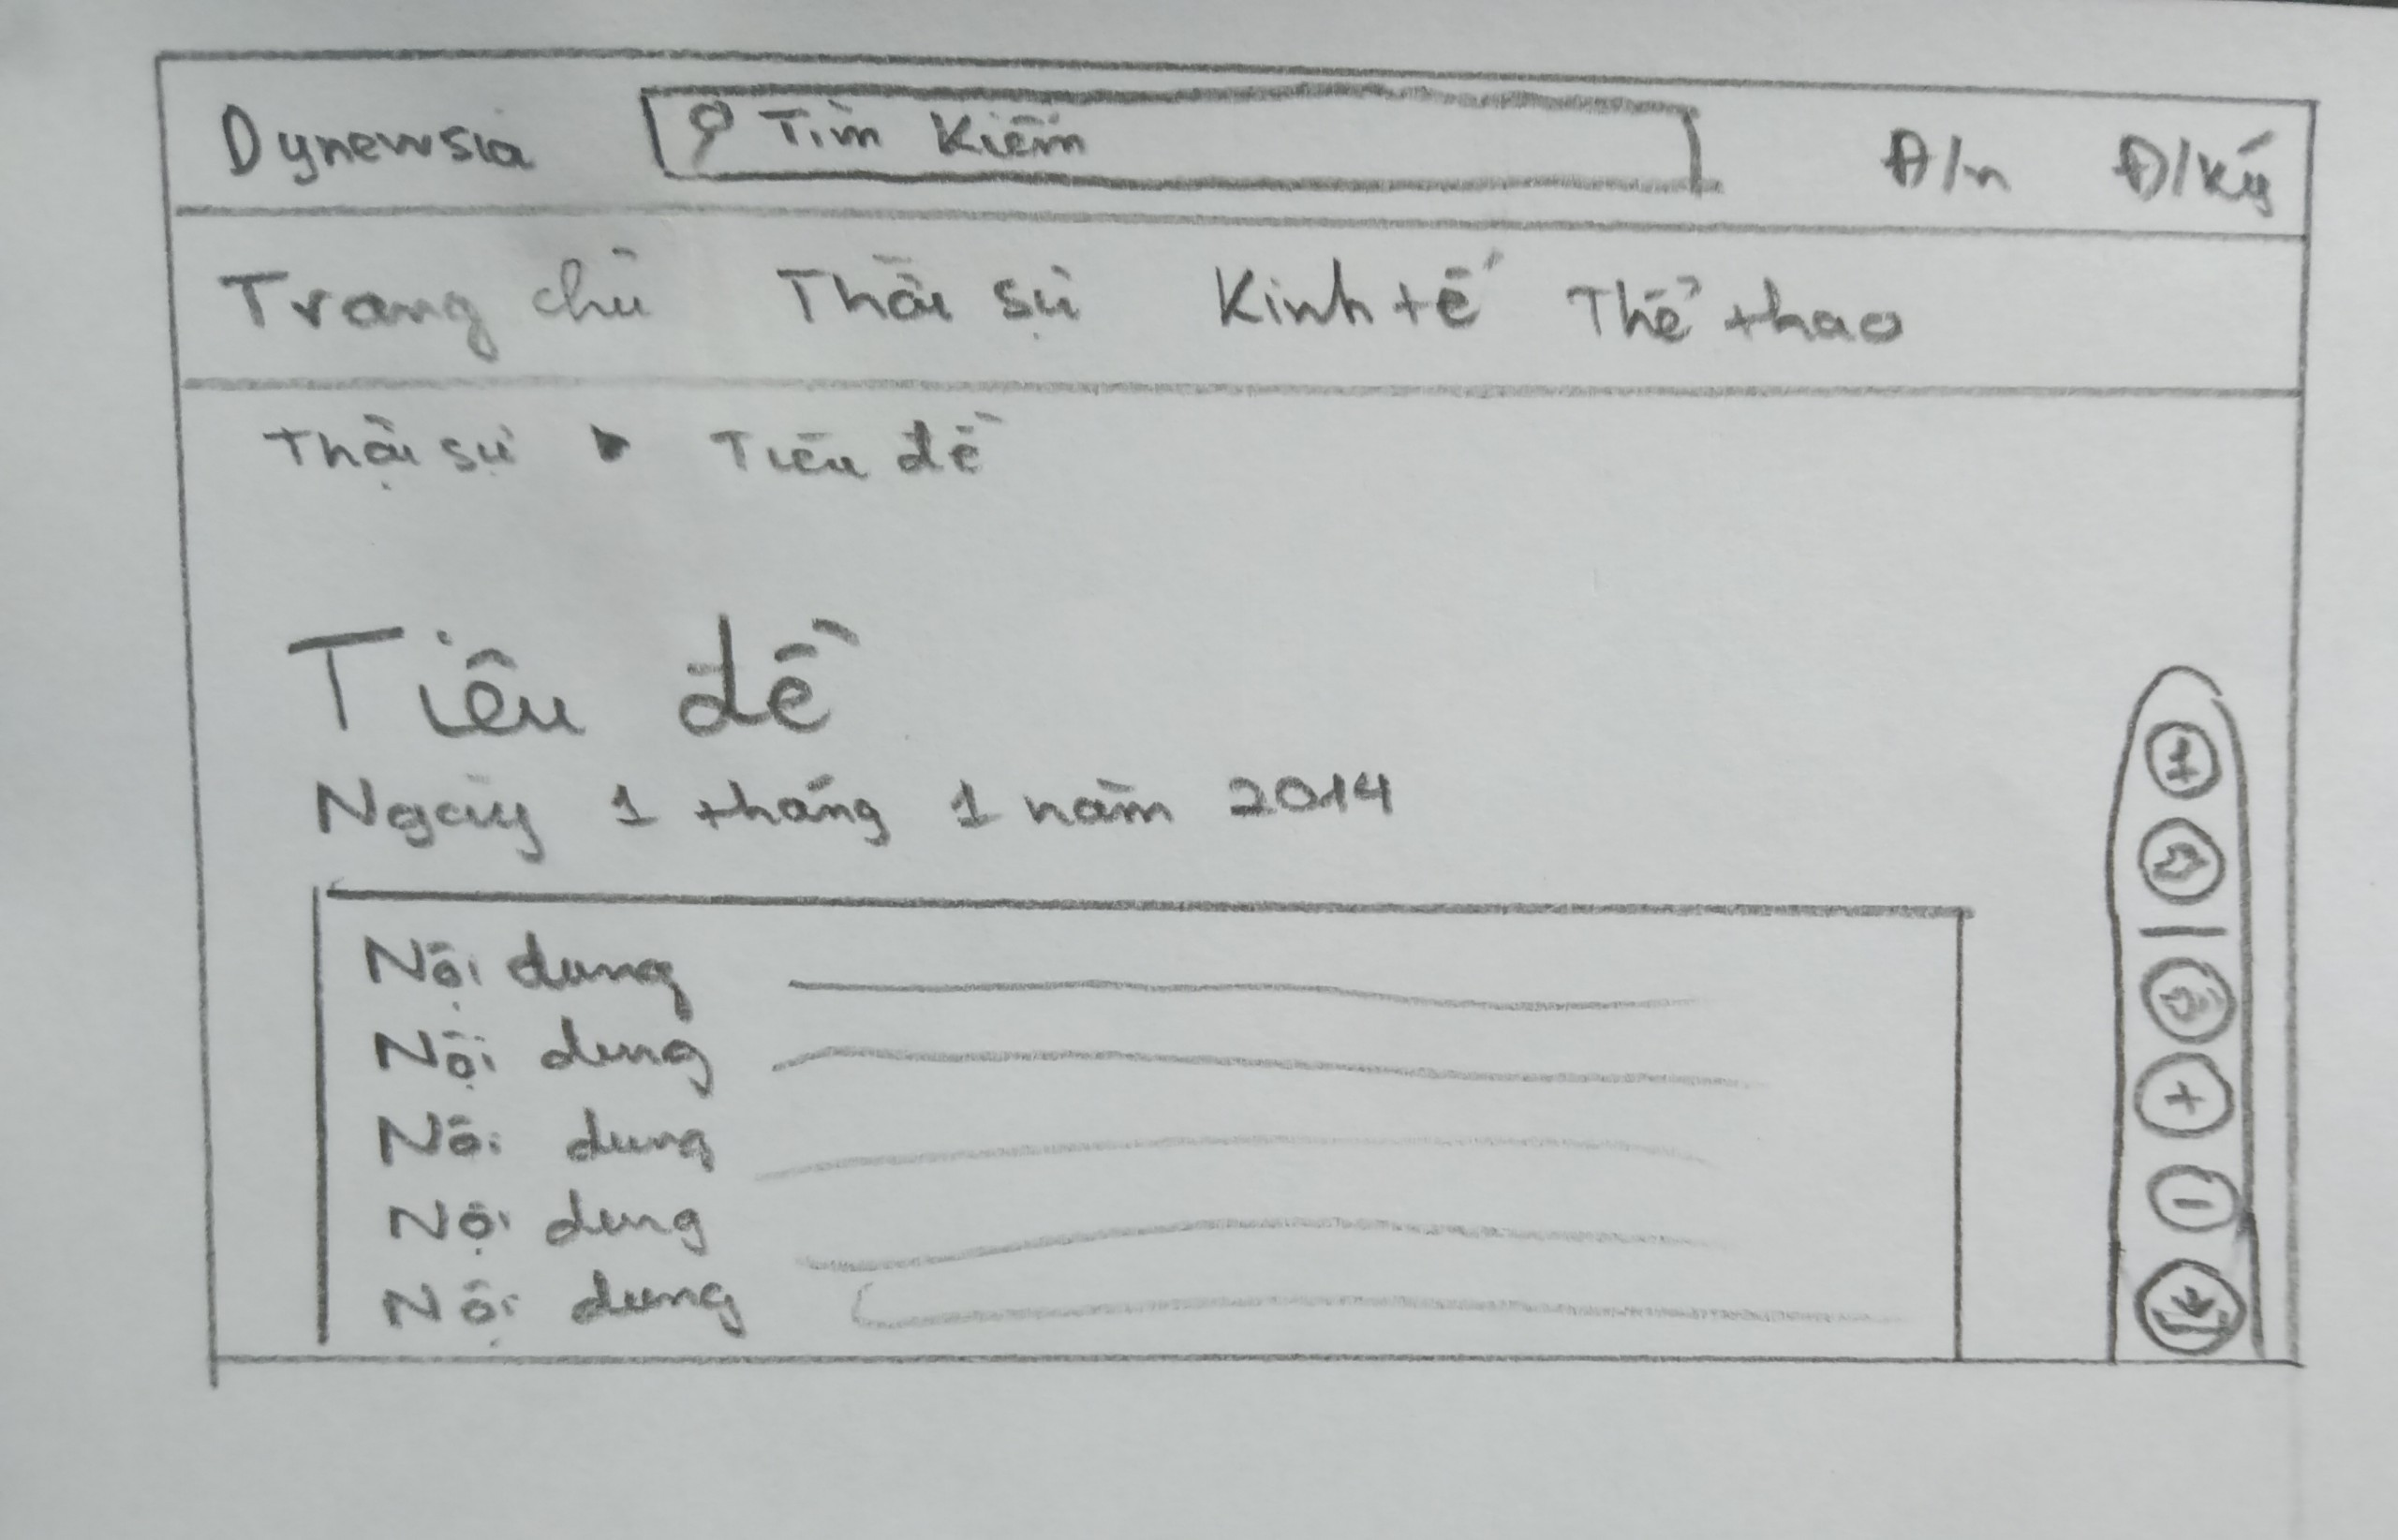 Dynewsia Tìm Kiếm Đ/n Đ/ký
Trang chủ Thời sự Kinh tế Thể thao
Thời sự ▶ Tiêu đề
Tiêu đề
Ngày 1 tháng 1 năm 2014
Nội dung
Nội dung
Nội dung
Nội dung
Nội dung